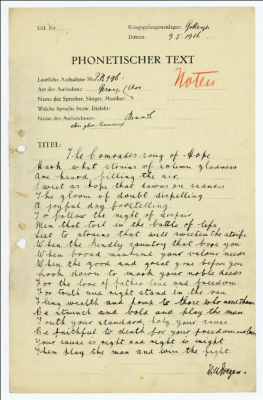 Lfd. Nr.
Kriegsgefangenenlager:
Datum: 9.5.1916
PHONETISCHER TEXT
Lautliche Aufnahme Nr. P.K. 196
Noten
Art der Aufnahme:
Name der Sprecher, Sänger, Musiker:
Welche Sprache bezw. Dialekt:
Name des Aufzeichners:
TITEL:
The Comrades song of Hope
Hark what strains of solemn gladness
Are heard filling the air,
Sweet as hope that dawns on sadness
The gloom of doubt dispelling
A joyful day foretelling
To follow the night of despair
Men that toil in the battle of life,
List to strains that will sweeten the strife
When the kindly country that bore you
When broad mankind your valour needs
When the good and great gone before you
Look down to mark your noble deeds
For the love of father land and freedom
For truth and right stand in the van
Fling wealth and pomp to those who need them
Be staunch and bold and play the man
Truth your standard, holy your cause
Be faithful to death for your freedom and laws
Your cause is right and right is might
Then play the man and win the fight.